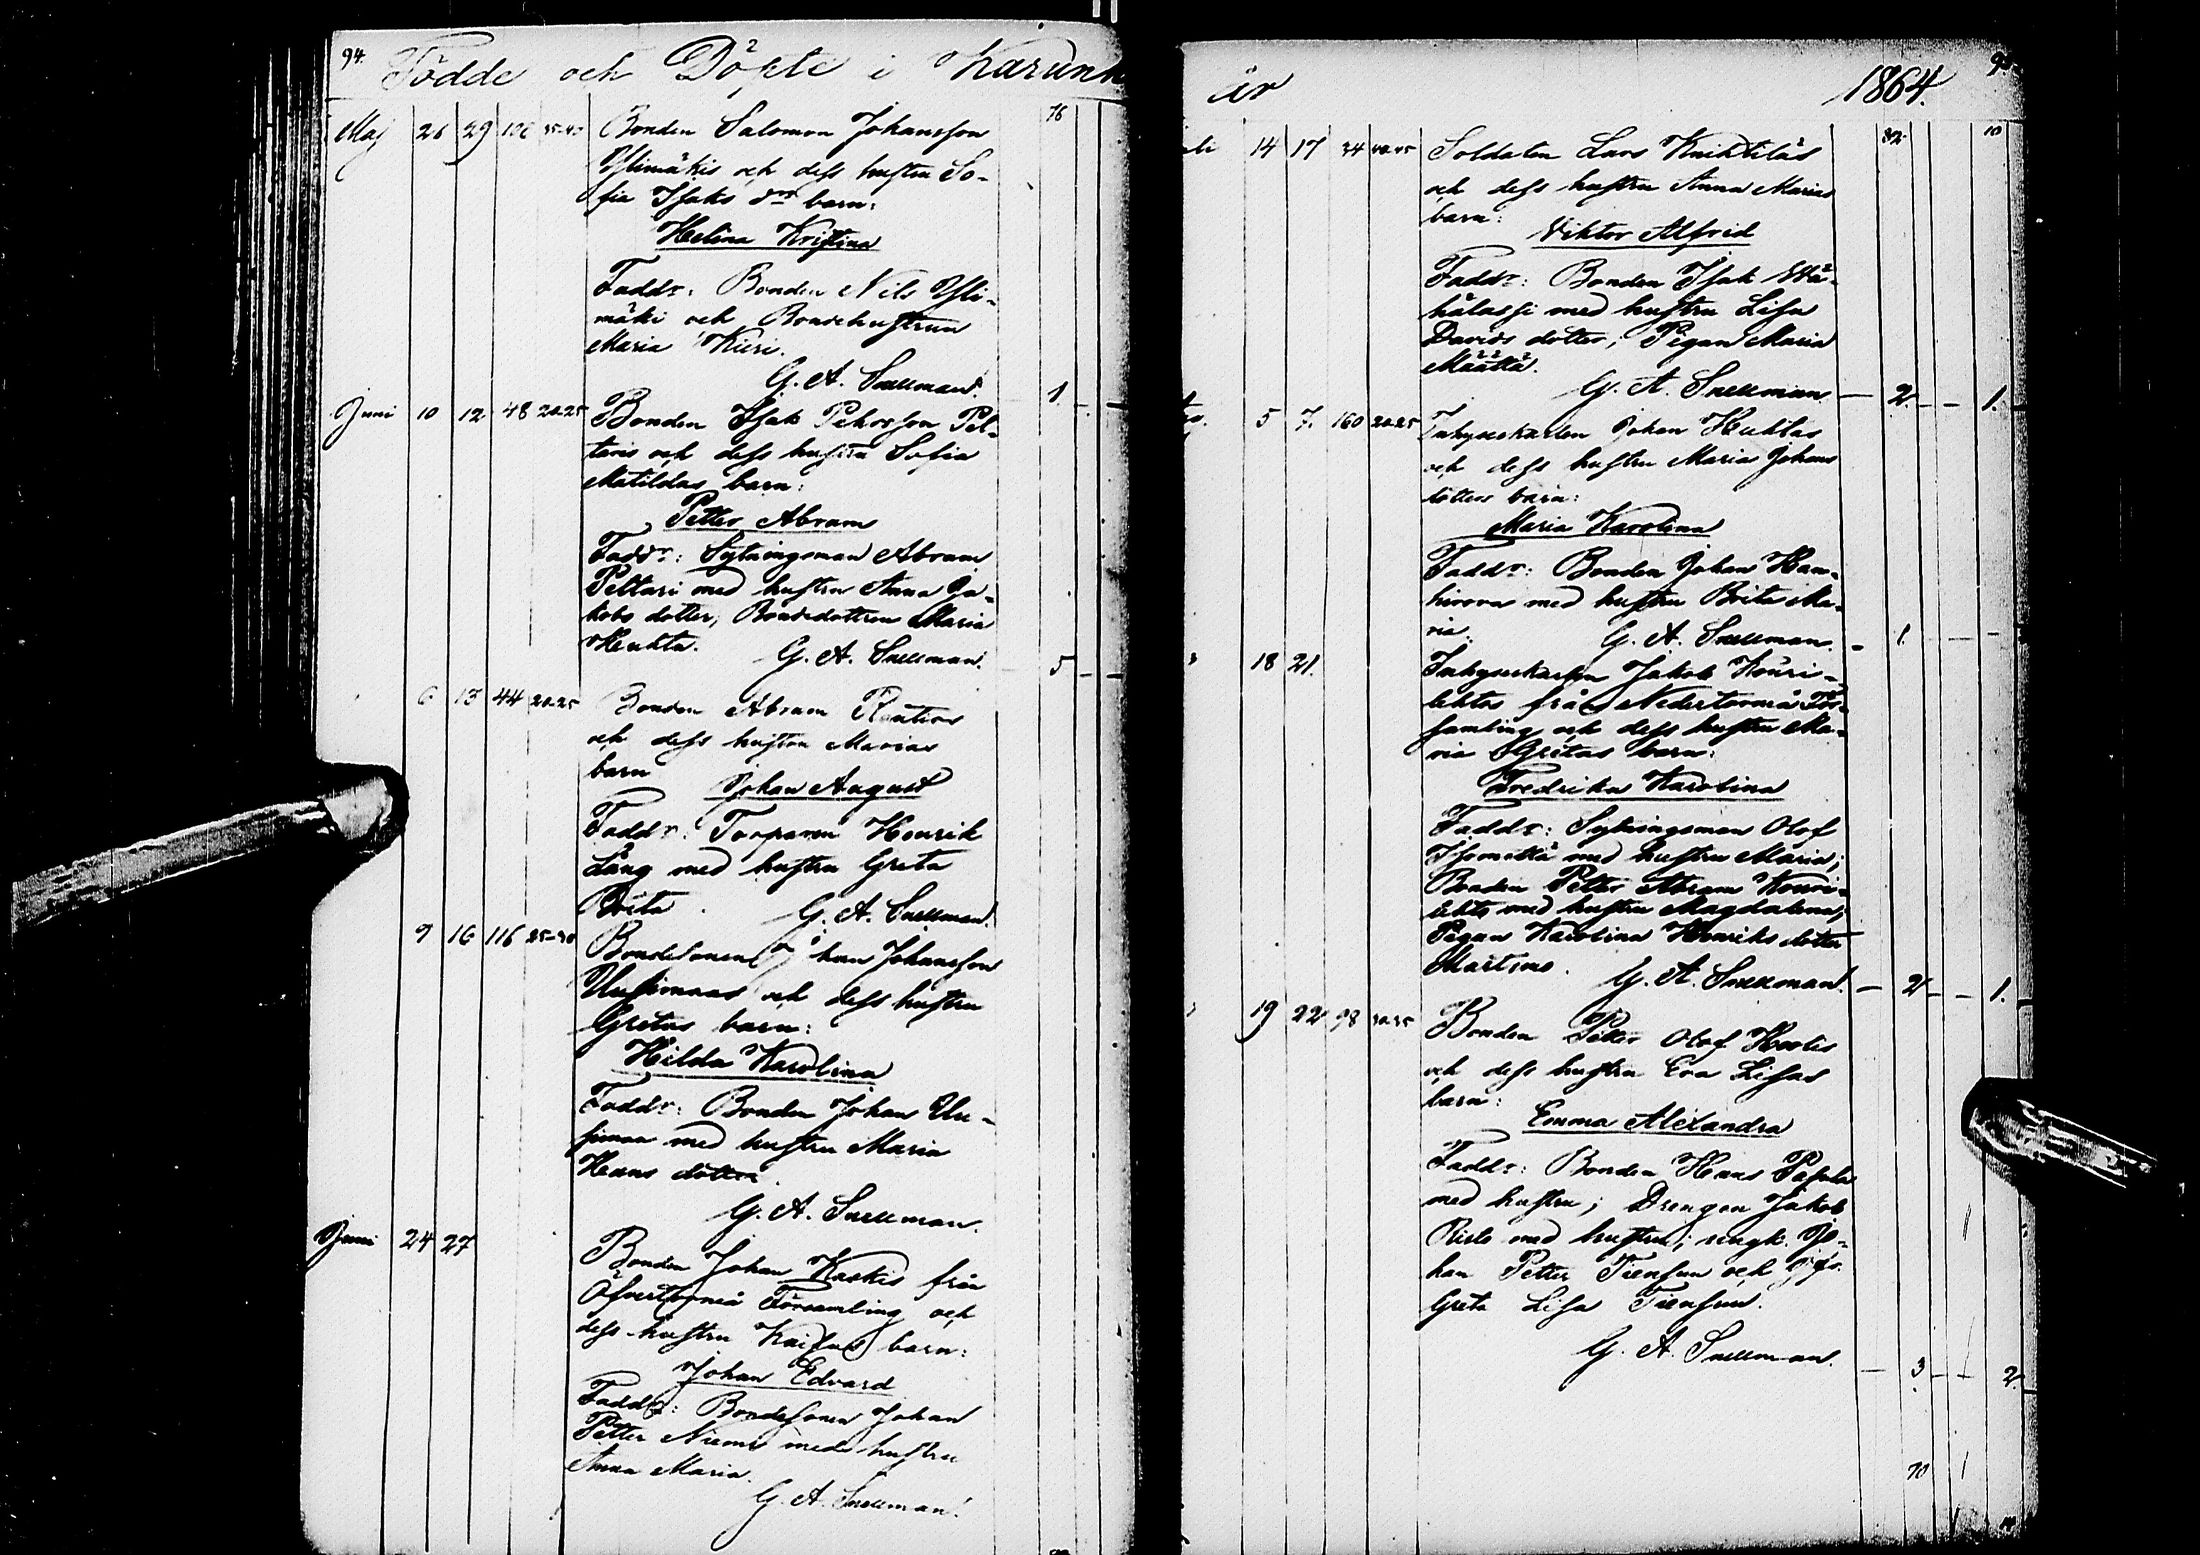 94.
Födde och Döpte i Karunk
76
Maj 26 29 106 35-40 Bonden Salomon Johansson
Ylimäkis och dess hustru So-
fia Isaks dr barn:
Helena Kristina
Faddr: Bonden Nils Yli-
mäki och Bondehustrun
Maria Kieri.
G. A. Snellman. 1.
Juni 10 12 48 20-25 Bonden Isak Pehrsson Pel-
taris och dess hustru Sofia
Matildas barn:
Petter Abram
Faddr: Sytningsman Abram
Peltari med hustru Anna Ja-
kobs dotter, Bondedottren Maria
Huhta. G. A. Snellman. 5
6 13 44 20-25 Bonden Abram Rautios
och dess hustru Marias
barn
Johan August
Faddr: Torparen Henrik
Lång med hustru Greta
Brita. G. A. Snellman.
9 16 116 25-30 Bondesonen Johan Johansson
Uusimaas och dess hustru
Gretas barn:
Hilda Karolina
Faddr: Bonden Johan Uu-
simaa med hustru Maria
Hans dotter.
G. A. Snellman.
Juni 24 27
Bonden Johan Kaskis från
Öfvertorneå Församling och
dess hustru Kaisas barn:
Johan Edvard
Faddr: Bondesonen Johan
Petter Niemi med hustru
Anna Maria.
G. A. Snellman.
år 1864. 95
32 10
uli 14 17 34 40-45 Soldaten Lars Knihtiläs
och dess hustru Anna Marias
barn:
Viktor Alfrid
Faddr: Bonden Isak
hälassi med hustru Lisa
Davids dotter; Pigan Maria
Määttä.
G. A. Snellman — 2. — 1.
5 7. 160 20-25 Inhysekarlen Johan Huhtas
och dess hustru Maria Johans
dotters barn:
Maria Karolina
Faddr: Bonden Johan Han-
hirova med hustru Brita Ma-
ria. G. A. Snellman. 1.
18 21. Inhysekarlen Jakob Kouri-
lehtos från Nedertorneå För-
samling och dess hustru Ma-
ria Gretas barn:
Fredrika Karolina
Faddr: Sytningsman Olof
Isometsä med hustru Maria;
Bonden Petter Abram Kouri-
lehto med hustru Magdalena;
Pigan Karolina Henriks dotter
Martimo. G. A. Snellman. — 2 — 1.
19 22 98 30-35 Bonden Petter Olof
och dess hustru Eva Lisas
barn:
Emma Alexandra
Faddr: Bonden Hans
med hustru; Drengen Jakob
Risto med hustru; yngk. Jo-
han Petter Tiensuu och Jgfr.
Greta Lisa Tiensuu.
G. A. Snellman. — 3. — 2.
70